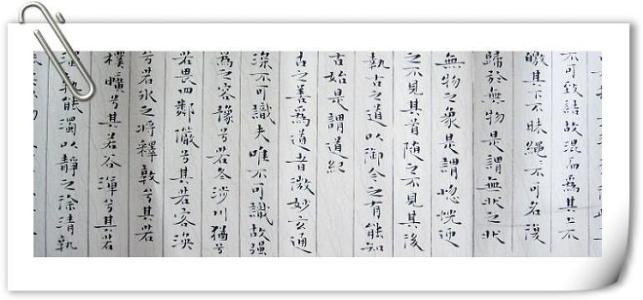 不可致結故混而為其上不
皦其下不昧繩〻不可名復
歸於無物是謂無狀之狀
無物之象是謂惚恍迎
之不見其首隨之不見其後
執古之道以御今之有能知
古始是謂道紀
古之善為道者微妙玄通
深不可識夫唯不可識故强
為之容豫兮若冬涉川猶兮
若畏四鄰儼兮其若容渙
兮若冰之將釋敦兮其若
樸曠兮其若谷渾兮其若
濁孰能濁以靜之涂清孰